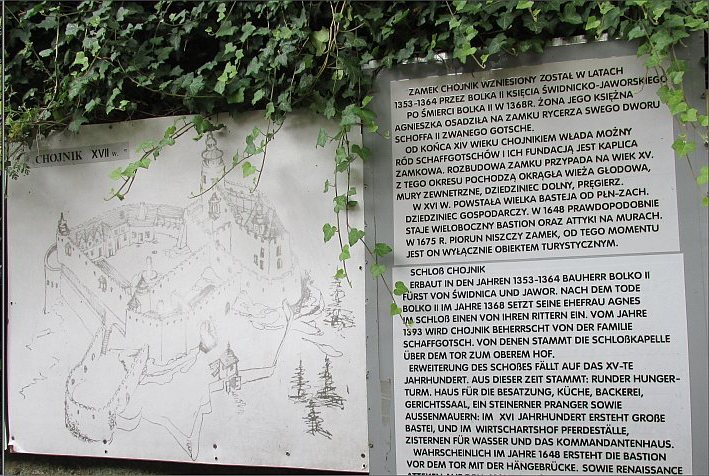 CHOJNIK XVII w.
ZAMEK CHOJNIK WZNIESIONY ZOSTAŁ W LATACH
1353-1364 PRZEZ BOLKA II KSIĘCIA ŚWIDNICKO-JAWORSKIEGO
PO ŚMIERCI BOLKA II W 1368R. ŻONA JEGO KSIĘŻNA
AGNIESZKA OSADZIŁA NA ZAMKU RYCERZA SWEGO DWORU
SCHOFFA II ZWANEGO GOTSCHE.
OD KOŃCA XIV WIEKU CHOJNIKIEM WŁADA MOŻNY
RÓD SCHAFFGOTSCHÓW I ICH FUNDACJĄ JEST KAPLICA
ZAMKOWA. ROZBUDOWA ZAMKU PRZYPADA NA WIEK XV.
Z TEGO OKRESU POCHODZĄ OKRĄGŁA WIEŻA GŁODOWA,
MURY ZEWNETRZNE, DZIEDZINIEC DOLNY, PRĘGIERZ.
W XVI W. POWSTAŁA WIELKA BASTEJA OD PŁN-ZACH.
DZIEDZINIEC GOSPODARCZY. W 1648 PRAWDOPODOBNIE
STAJE WIELOBOCZNY BASTION ORAZ ATTYKI NA MURACH.
W 1675 R. PIORUN NISZCZY ZAMEK, OD TEGO MOMENTU
JEST ON WYŁĄCZNIE OBIEKTEM TURYSTYCZNYM.
SCHLOß CHOJNIK
ERBAUT IN DEN JAHREN 1353-1364 BAUHERR BOLKO II
FÜRST VON ŚWIDNICA UND JAWOR. NACH DEM TODE
BOLKO II IM JAHRE 1368 SETZT SEINE EHEFRAU AGNES
IM SCHLOß EINEN VON IHREN RITTERN EIN. VOM JAHRE
1393 WIRD CHOJNIK BEHERRSCHT VON DER FAMILIE
SCHAFFGOTSCH. VON DENEN STAMMT DIE SCHLOßKAPELLE
ÜBER DEM TOR ZUM OBEREM HOF.
ERWEITERUNG DES SCHOßES FÄLLT AUF DAS XV-TE
JAHRHUNDERT. AUS DIESER ZEIT STAMMT: RUNDER HUNGER-
TURM. HAUS FÜR DIE BESATZUNG, KÜCHE, BACKEREI,
GERICHTSSAAL, EIN STEINERNER PRANGER SOWIE
AUSSENMAUERN: IM XVI JAHRHUNDERT ERSTEHT GROßE
BASTEI, UND IM WIRTSCHARTSHOF PFERDESTÄLLE,
ZISTERNEN FÜR WASSER UND DAS KOMMANDANTENHAUS.
WAHRSCHEINLICH IM JAHRE 1648 ERSTEHT DIE BASTION
VOR DEM TOR MIT DER HÄNGERÜCKE. SOWIE RENAISSANCE